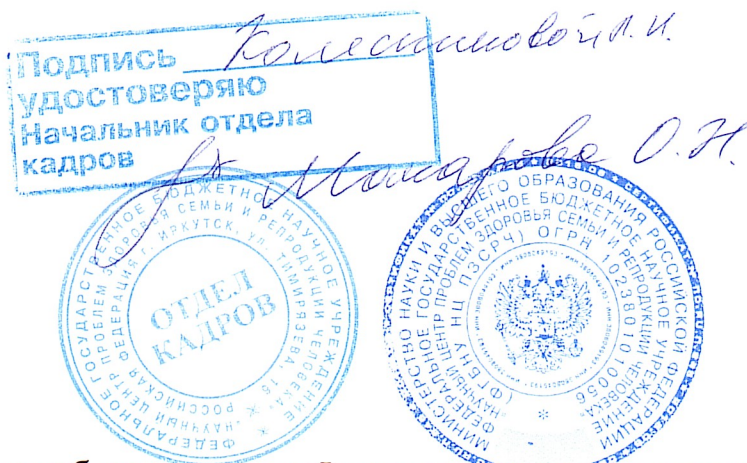 Подпись Колесниковой Л.И.
удостоверяю
Начальник отдела
кадров
О.Н.
ФЕДЕРАЛЬНОЕ ГОСУДАРСТВЕННОЕ БЮДЖЕТНОЕ НАУЧНОЕ УЧРЕЖДЕНИЕ
"НАУЧНЫЙ ЦЕНТР ПРОБЛЕМ ЗДОРОВЬЯ СЕМЬИ И РЕПРОДУКЦИИ ЧЕЛОВЕКА"
РОССИЙСКАЯ ФЕДЕРАЦИЯ Г. ИРКУТСК, УЛ. ТИМИРЯЗЕВА, 16
ОТДЕЛ
КАДРОВ
МИНИСТЕРСТВО НАУКИ И ВЫСШЕГО ОБРАЗОВАНИЯ РОССИЙСКОЙ ФЕДЕРАЦИИ
ФЕДЕРАЛЬНОЕ ГОСУДАРСТВЕННОЕ БЮДЖЕТНОЕ НАУЧНОЕ УЧРЕЖДЕНИЕ
"НАУЧНЫЙ ЦЕНТР ПРОБЛЕМ ЗДОРОВЬЯ СЕМЬИ И РЕПРОДУКЦИИ ЧЕЛОВЕКА"
(ФГБНУ НЦ ПЗСРЧ) ОГРН 1023801010056